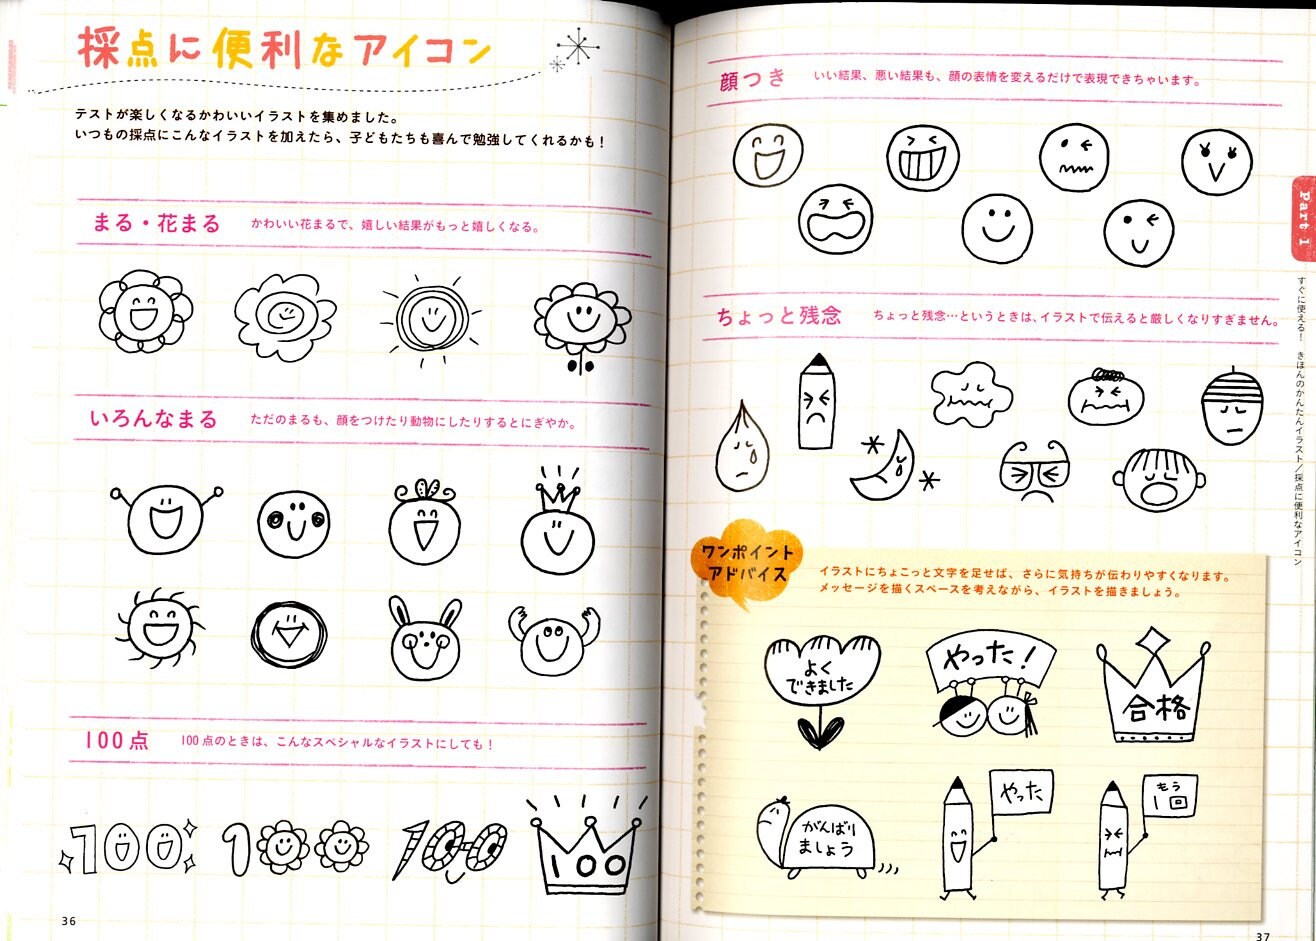 採点に便利なアイコン
テストが楽しくなるかわいいイラストを集めました。
いつもの採点にこんなイラストを加えたら、子どもたちも喜んで勉強してくれるかも！
まる・花まる
かわいい花まるで、嬉しい結果がもっと嬉しくなる。
いろんなまる
ただのまるも、顔をつけたり動物にしたりするとにぎやか。
100点
100点のときは、こんなスペシャルなイラストにしても！
100
100
100
100
36
顔つき
いい結果、悪い結果も、顔の表情を変えるだけで表現できちゃいます。
ちょっと残念
ちょっと残念…というときは、イラストで伝えると厳しくなりすぎません。
ワンポイント
アドバイス
イラストにちょこっと文字を足せば、さらに気持ちが伝わりやすくなります。
メッセージを描くスペースを考えながら、イラストを描きましょう。
よく
できました
やった！
合格
がんばり
ましょう
やった
もう
1回
Part 1
すぐに使える！ きほんのかんたんイラスト／採点に便利なアイコン
37